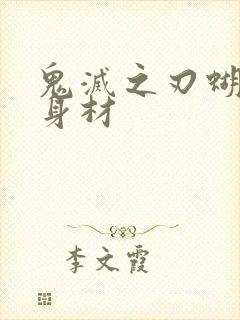 鬼滅之刃蝴
身材
李文霞